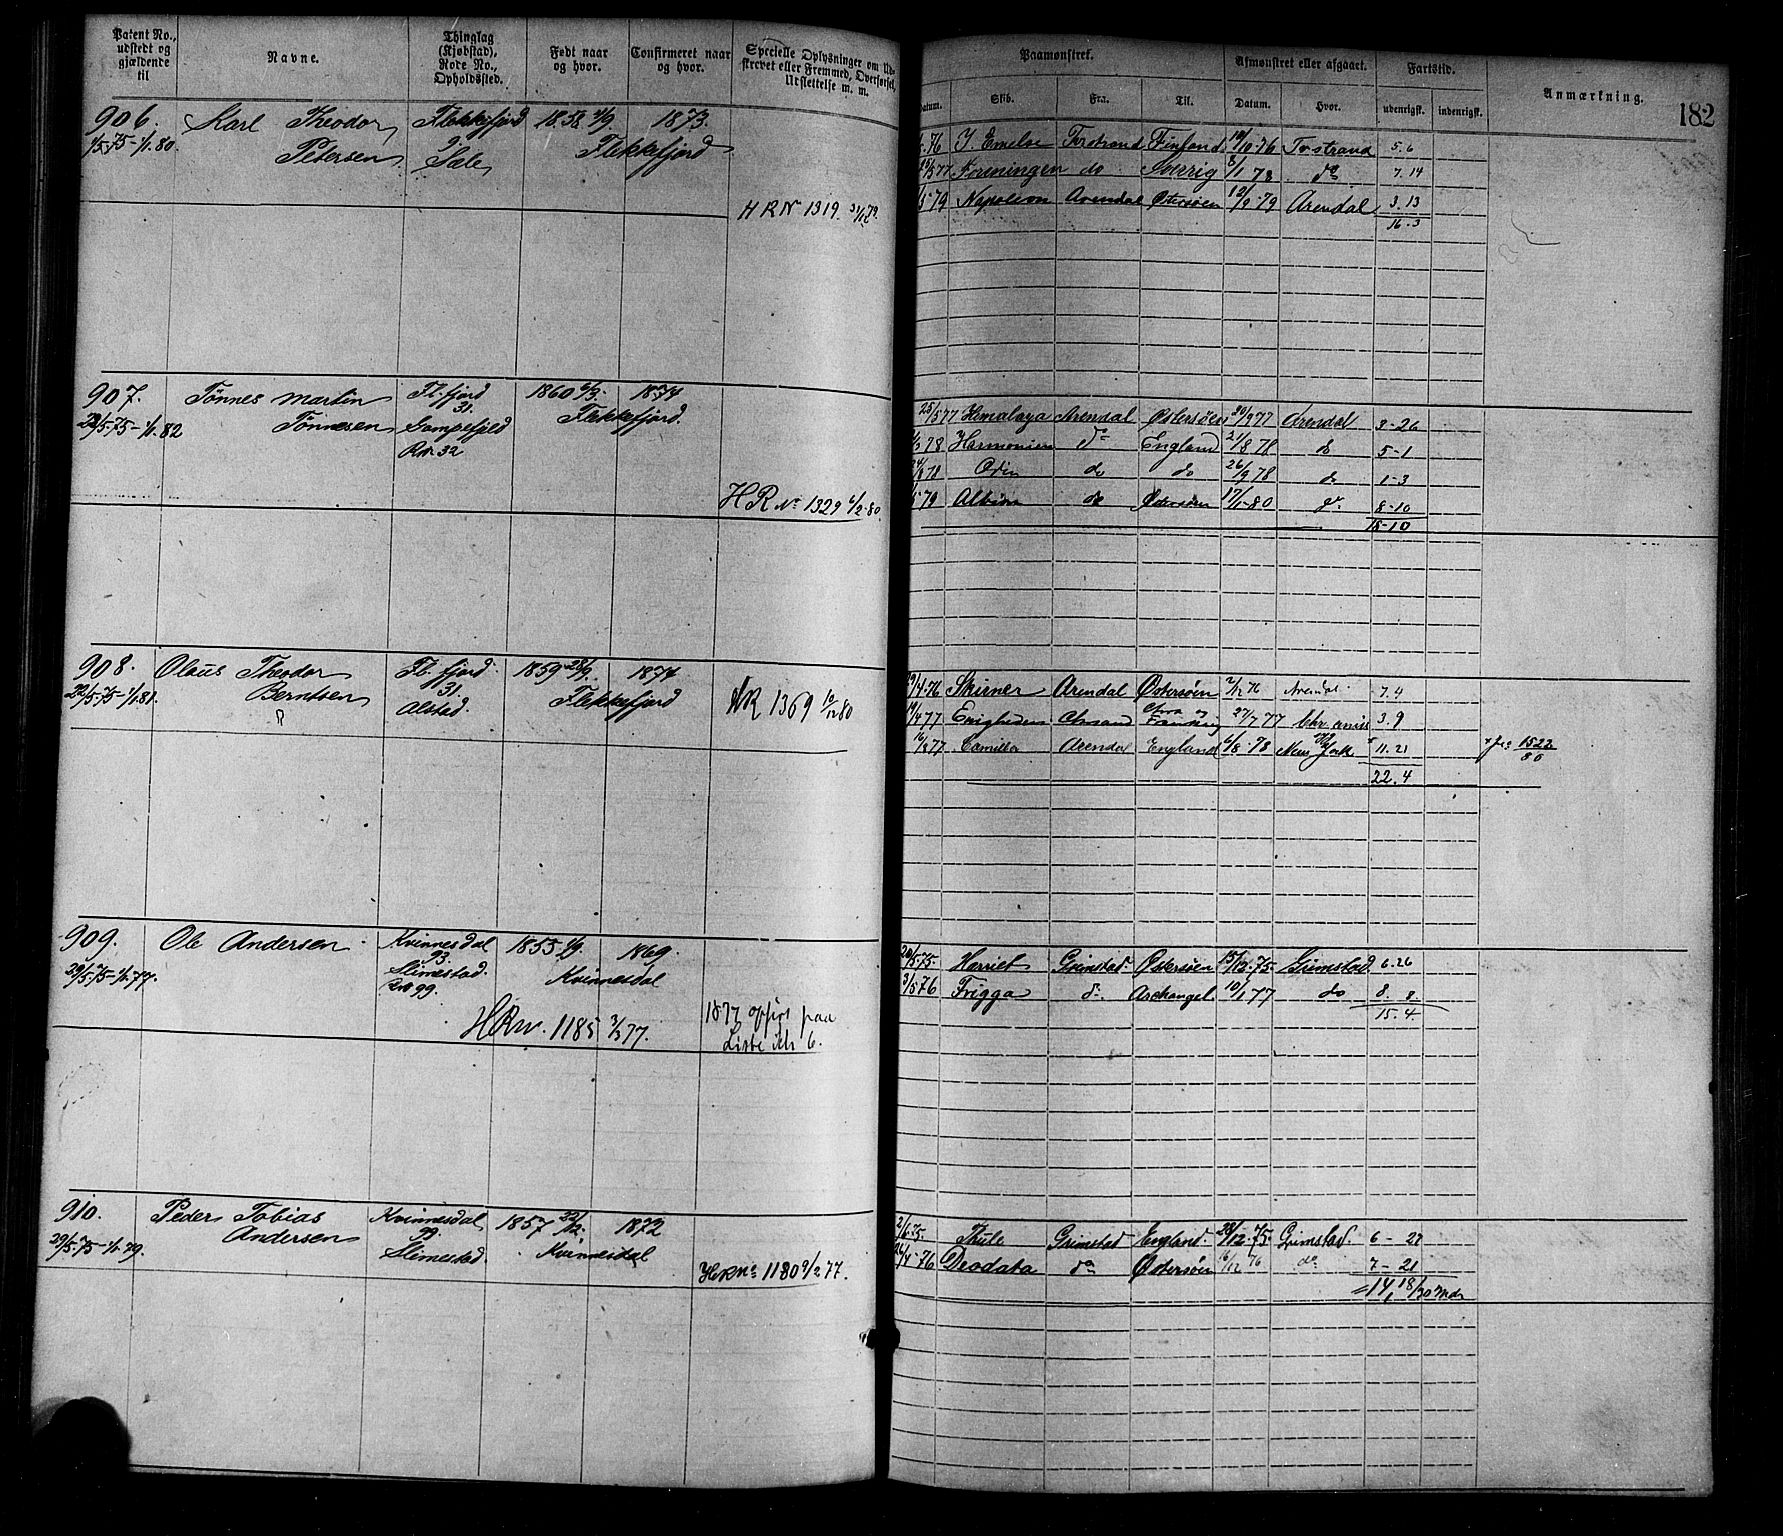 Patent No., udstedt og gjældende til
Navne.
Thinglag (Kjøbstad), Rode No., Opholdssted.
Født naar og hvor.
Confirmeret naar og hvor.
Specielle Oplysninger om Udskrevet eller Fremmed, Overførsel, Udslettelse m. m.
Paamønstret.
Afmønstret eller afgaaet.
Fartstid.
Anmærkning.
182
Datum. Skib. Fra. Til. Datum. Hvor. udenrigsk. indenrigsk.
906. Karl Theodor Flekkefjord 1858 1873.
Petersen Flekkefjord
H R No 1319.
76 Finland 10/10-76 5.6
Foreningen do Sverrig 8/1 78 do 7.14
79 Napoleon Arendal Østersøen 12/9-79 Arendal 3.13
16.3
907. Tønnes Martin Fl. fjord 1860 1874
22/5-75-1/1 82 Tønnesen 31. Flekkefjord.
32
H R No 1329 6/2-80.
25/5 77 Himalaya Arendal Østersøen 77 Arendal 3-26
78 Harmonien do England 21/8 78 do 5-1
78 Odin do do 26/9 78 do 1-3
Albion do Østersøen 17/1-80 do 8-10
18-10
908. Olaus Theodor Fl. fjord 1859 28/9. 1874
22/5-75-1/1 81. Berntsen 31. Flekkefjord
Alstad.
HR 1369 10/12 80
4-76 Skirner Arendal Østersøen 2/12 76 Arendal 7.4
77 Enigheden 27/7 77 3.9
77 Camilla Arendal England 6/8-78 New York 11.21
1522/80
22.4
909. Ole Andersen Kvinnesdal 1855 1869.
29/5.75-1/1.77. 93. Kvinnesdal
Slimestad.
99.
HR No. 1185 77.
1877 opført paa
Liste 6.
75 Harriet Grimstad Østersøen 15/12-75 Grimstad 6.26
3/5 76 Frigga do Archangel 10/1 77 do 8. 8.
15.4.
910. Peder Tobias Kvinnesdal 1857 22/12. 1872
29/5.75-1/1.79. Andersen 99. Kvinnesdal
Slimestad.
HR No 1180 9/2 77.
2/6.75. Thule Grimstad England. 12.75 Grimstad. 6-27
26/4-76 Deodata do Østersøen 16/12 76 do 7-21
14, 18/30 Mdr